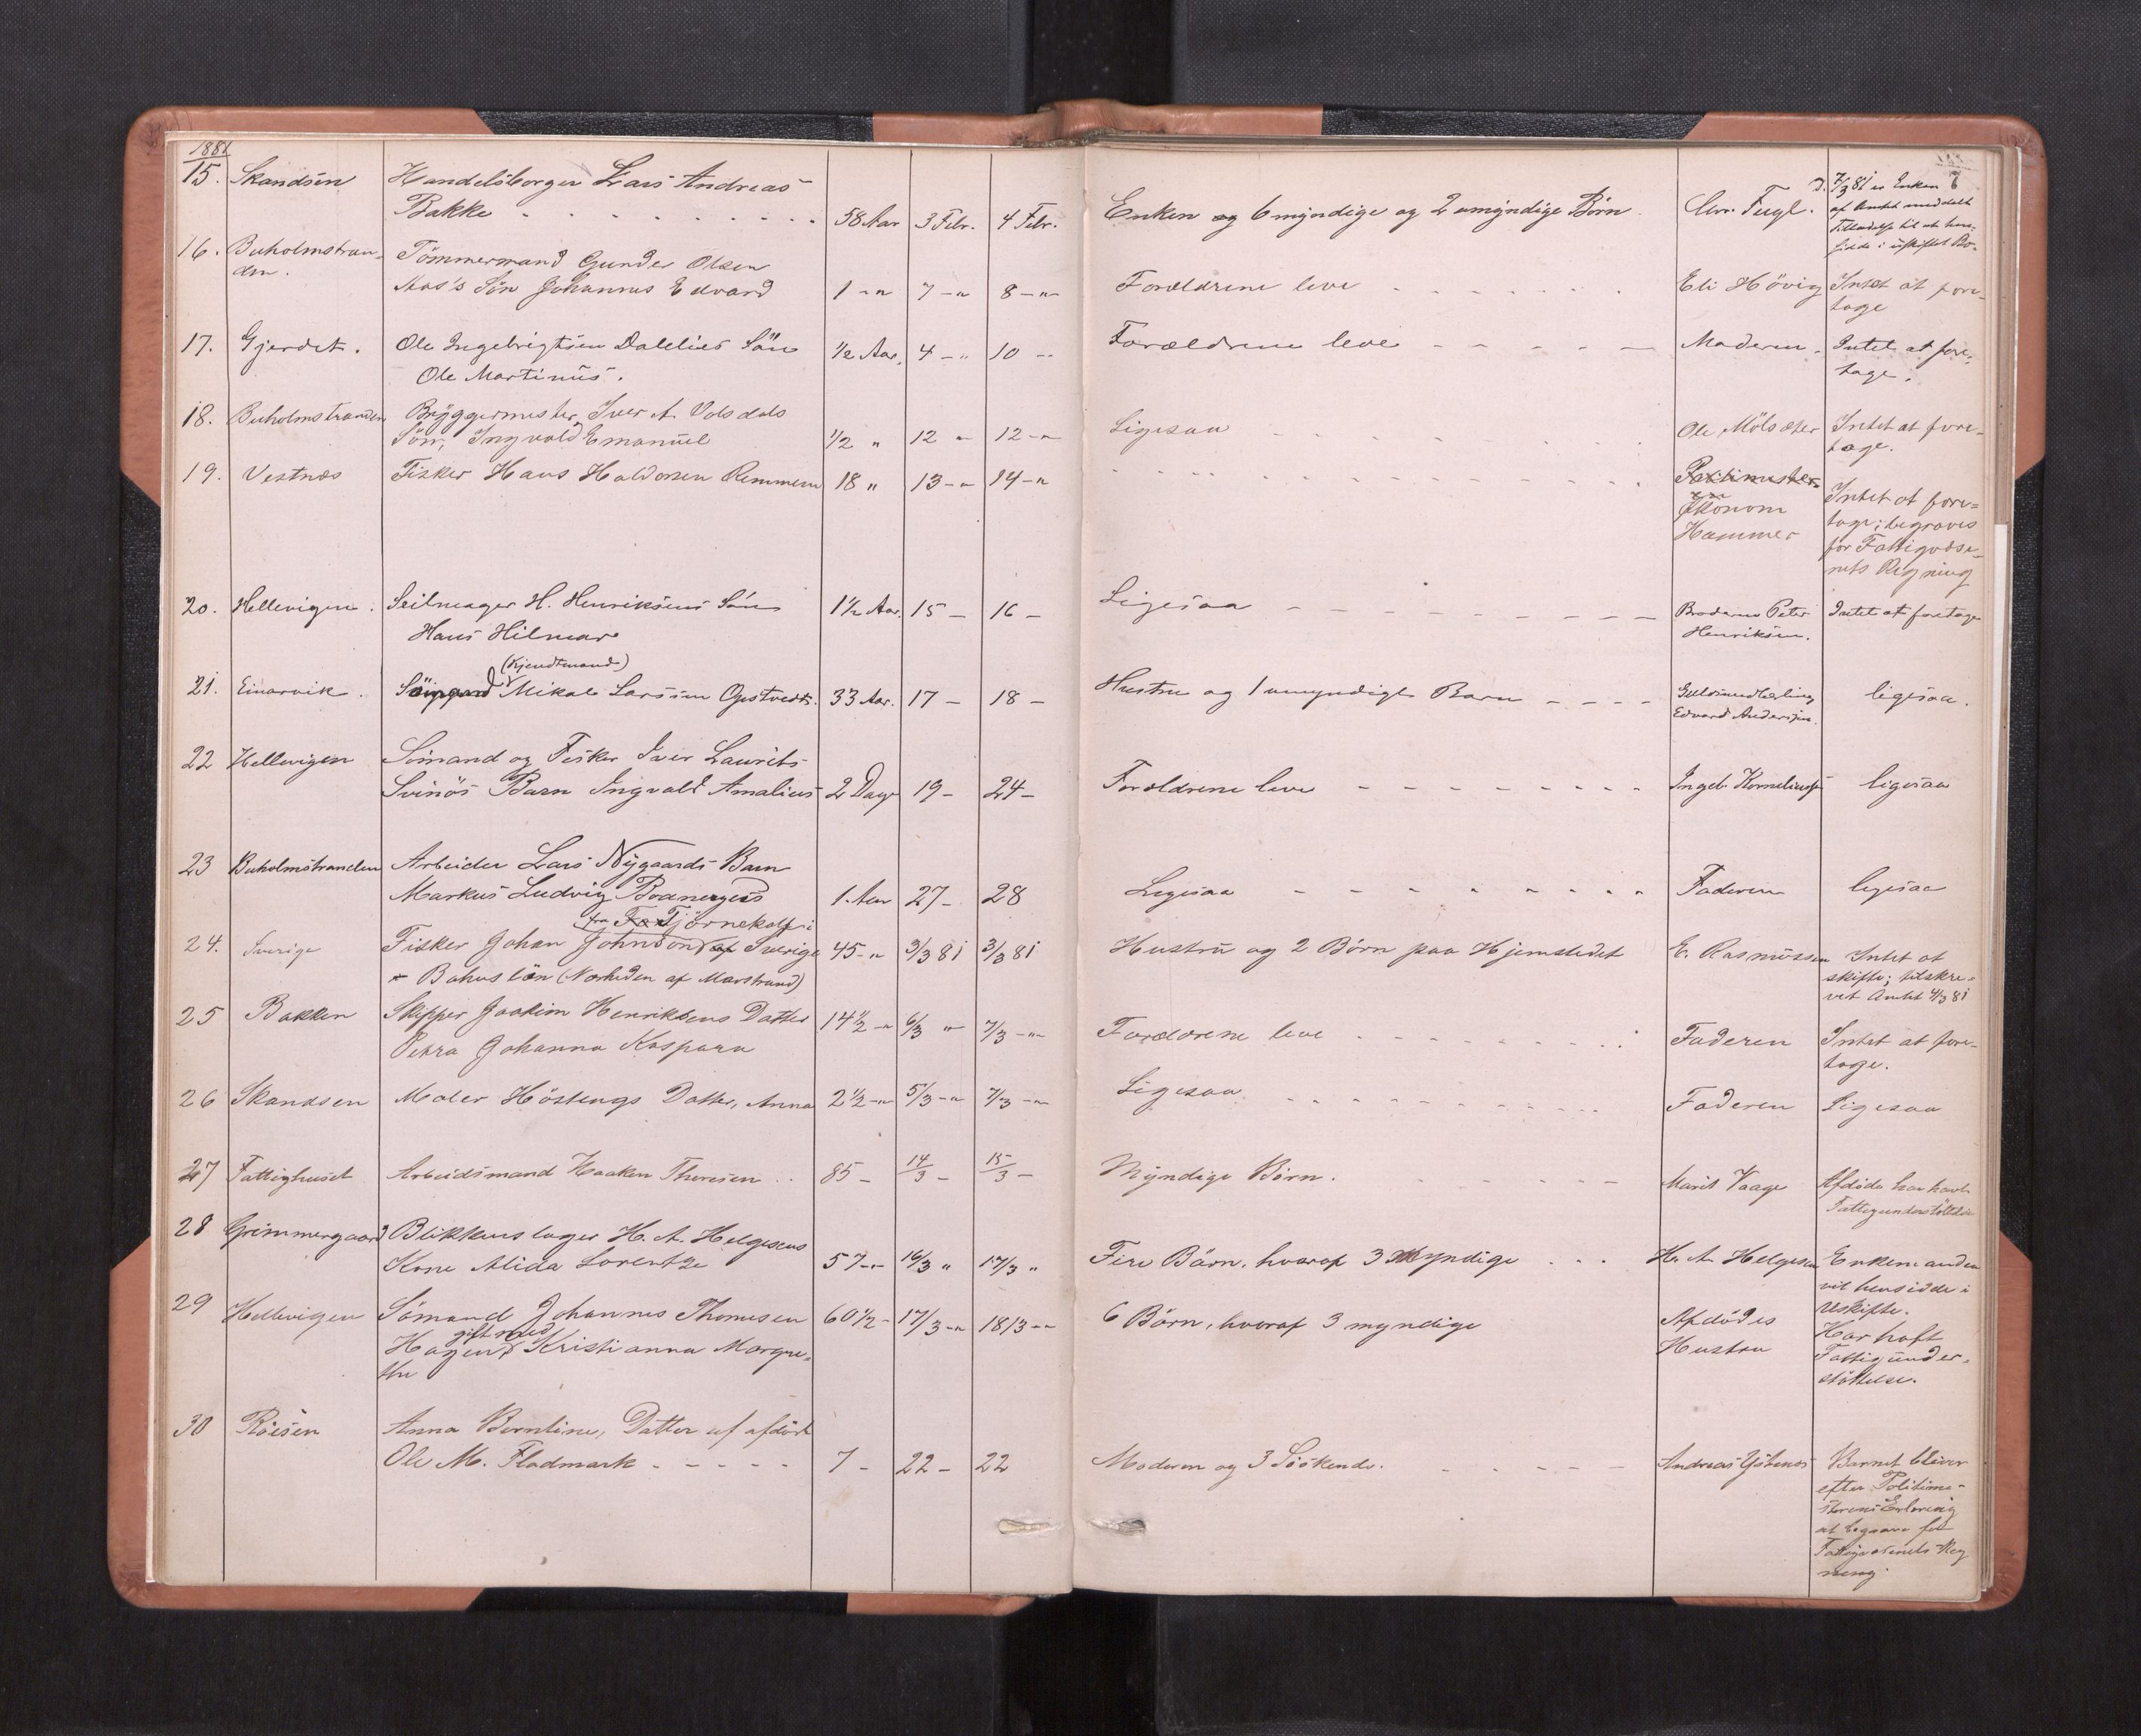 1881
15. Skandsen Handelsborger Lars Andreas
Bakke 58 Aar 3 Febr. 4 Febr. Enken og 6 myndige og 2 umyndige Börn. Chr. Fugl. D. 7/3 81 er Enken
af Amtet meddelt
Tilladelse til at hen-
sidde i uskiftet Bo.
7
16. Buholmstran-
den. Tömmermand Gunder Olsen
Aas's Sön Johannes Edvard 1 -"- 7 -"- 8 -"- Forældrene leve Eli Hövig Intet at fore-
tage
17. Gjerdet. Ole Ingebrigtsen Dalelies Sön
Ole Martinus. 1/2 Aar. 4 - " 10 -- Forældrene leve Moderen. Intet at fore-
tage.
18. Buholmstranden Bryggermester Iver A. Volsdals
Sön, Ingvald Emanuel 1/2 " 12 " 12 -"- Ligesaa Ole Mölsæter Intet at fore-
tage.
19. Vestnæs Fisker Hans Haldorsen Remmem 18 " 13 -"- 14 -"- Politimester
Økonom
Hammer Intet at fore-
tage; begraves
for Fattigvæse-
nets Regning
20. Hellevigen. Seilmager H. Henriksens Sön
Hans Hilmar 1 1/2 Aar. 15 - 16 - Ligesaa Broderen Peter
Henriksen. Intet at foretage
21. Einarvik. (Kjendtmand)
Mikal Larssen Opstvedt. 33 Aar. 17 - 18 - Hustru og 1 umyndigt Barn Guldsmedlærling
Edvard Andersen. ligesaa.
22 Hellevigen Sömand og Fisker Iver Laurits
Svinös Barn Ingvald Amalius 2 Dage 19 - 24 - Forældrene leve Ingeb. Korneliussen ligesaa
23 Buholmstranden Arbeider Lars Nygaards Barn
Markus Ludvig 1. Aar 27 - 28 Ligesaa Faderen ligesaa
fra Tjörnekalf i
24. Sverige Fisker Johan Johnson af Sverige 45 -" 3/3 81 3/3 81 Hustru og 2 Börn paa Hjemstedet E. Rasmussen Intet at
skifte; tilskre-
vet Amtet 4/3 81
Bohus län (Nærheden af Marstrand)
25 Bakken Skipper Joakim Henriksens Datter
Petra Johanna Kaspara 14 1/2 -" 6/3 " 7/3 -"- Forældrene leve Faderen Intet at fore-
tage.
26 Skandsen Maler Höstengs Datter, Anna 2 1/2 -" 5/3 -" 7/3 -"- Ligesaa Faderen Ligesaa
27 Fattighuset Arbeidsmand Haaken Theresen 85 - 14/3 - 15/3 - Myndige Börn. Marit Vaage Afdöde har havt
Fattigunderstöttelse
28 Grimmergaard Blikkenslager H. A. Helgesens
Kone Alida Lorentze 57 -- 16/3 " 17/3 " Fire Börn, hvoraf 3 Myndige H. A. Helgesen Enkemanden
vil hensidde i
Uskifte.
29 Hellevigen Sömand Johannes Thomesen
Hagen, gift med Kristianna Margre-
the 60 1/2 - 17/3 -"- 18/3 -"- 6 Börn, hvoraf 3 myndige Afdödes
Hustru Har haft
Fattigunder-
stöttelse.
30 Röisen Anna Berntine, Datter af afdöde
Ole M. Fladmark 7 - 22 - 22 Moderen og 3 Söskende. Andreas Barnet bliver
efter Politime-
sterens Erklæring
at begrave for
Fattigvæsenets Reg
ning.